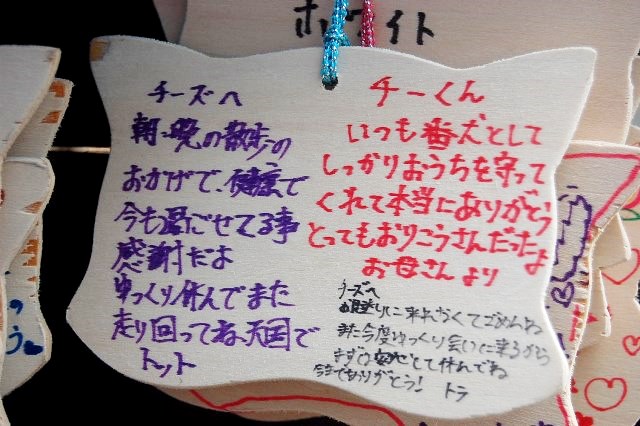 ホワイト
チーズへ
朝、晩の散歩の
おかげで、健康で
今も過ごせてる事
感謝だよ
ゆっくり休んでまた
走り回ってね、天国で
トット
チーくん
いつも番犬として
しっかりおうちを守って
くれて本当にありがとう
とってもおりこうさんだったよ
お母さんより
チーズへ
りに来れなくてごめんね
また今度ゆっくり会いに来るから
まずは安心して休んでね
今までありがとう!
トラ
う